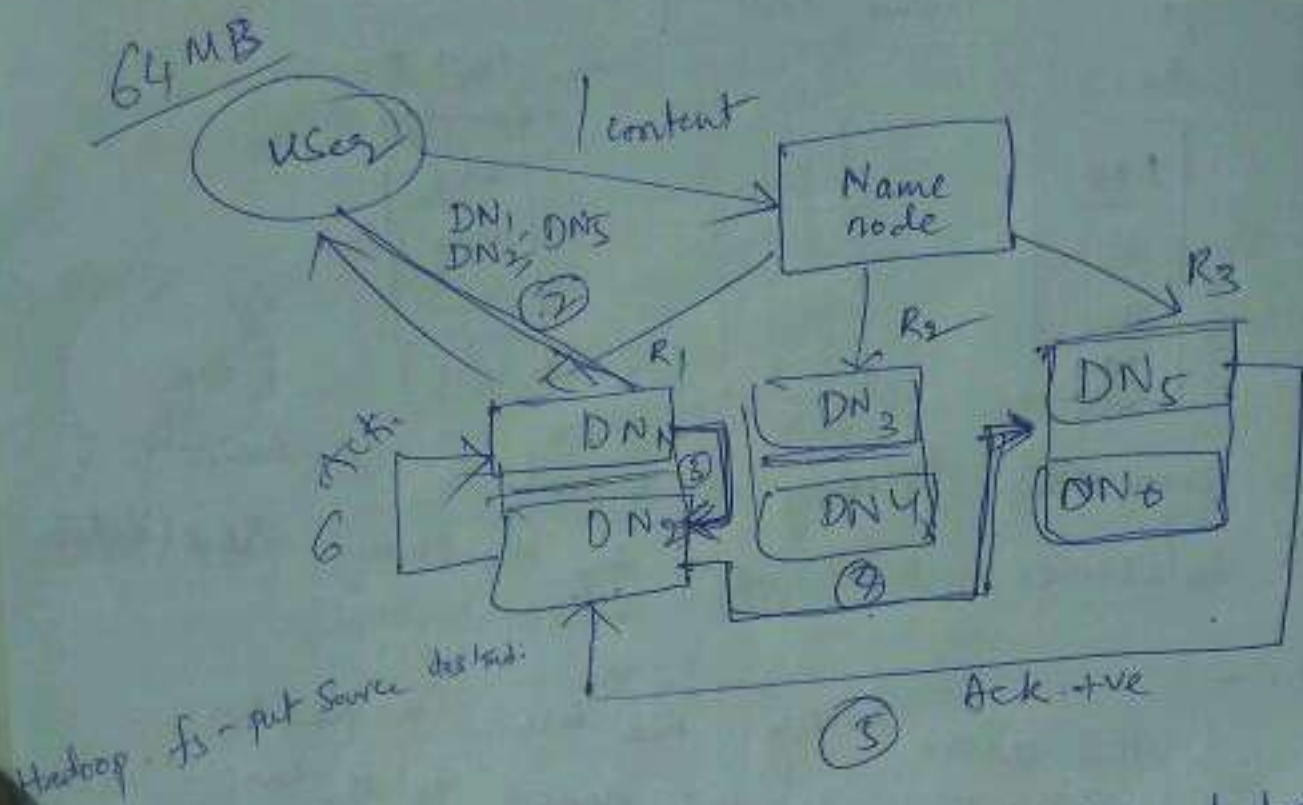 64 MB
user
1 content
Name
node
DN1, DN5
DN2,
2
R1
R2
R3
DN1
3
DN2
DN3
DN4
DN5
DN6
4
6 Ack.
Hadoop fs -put Source
Ack +ve
5